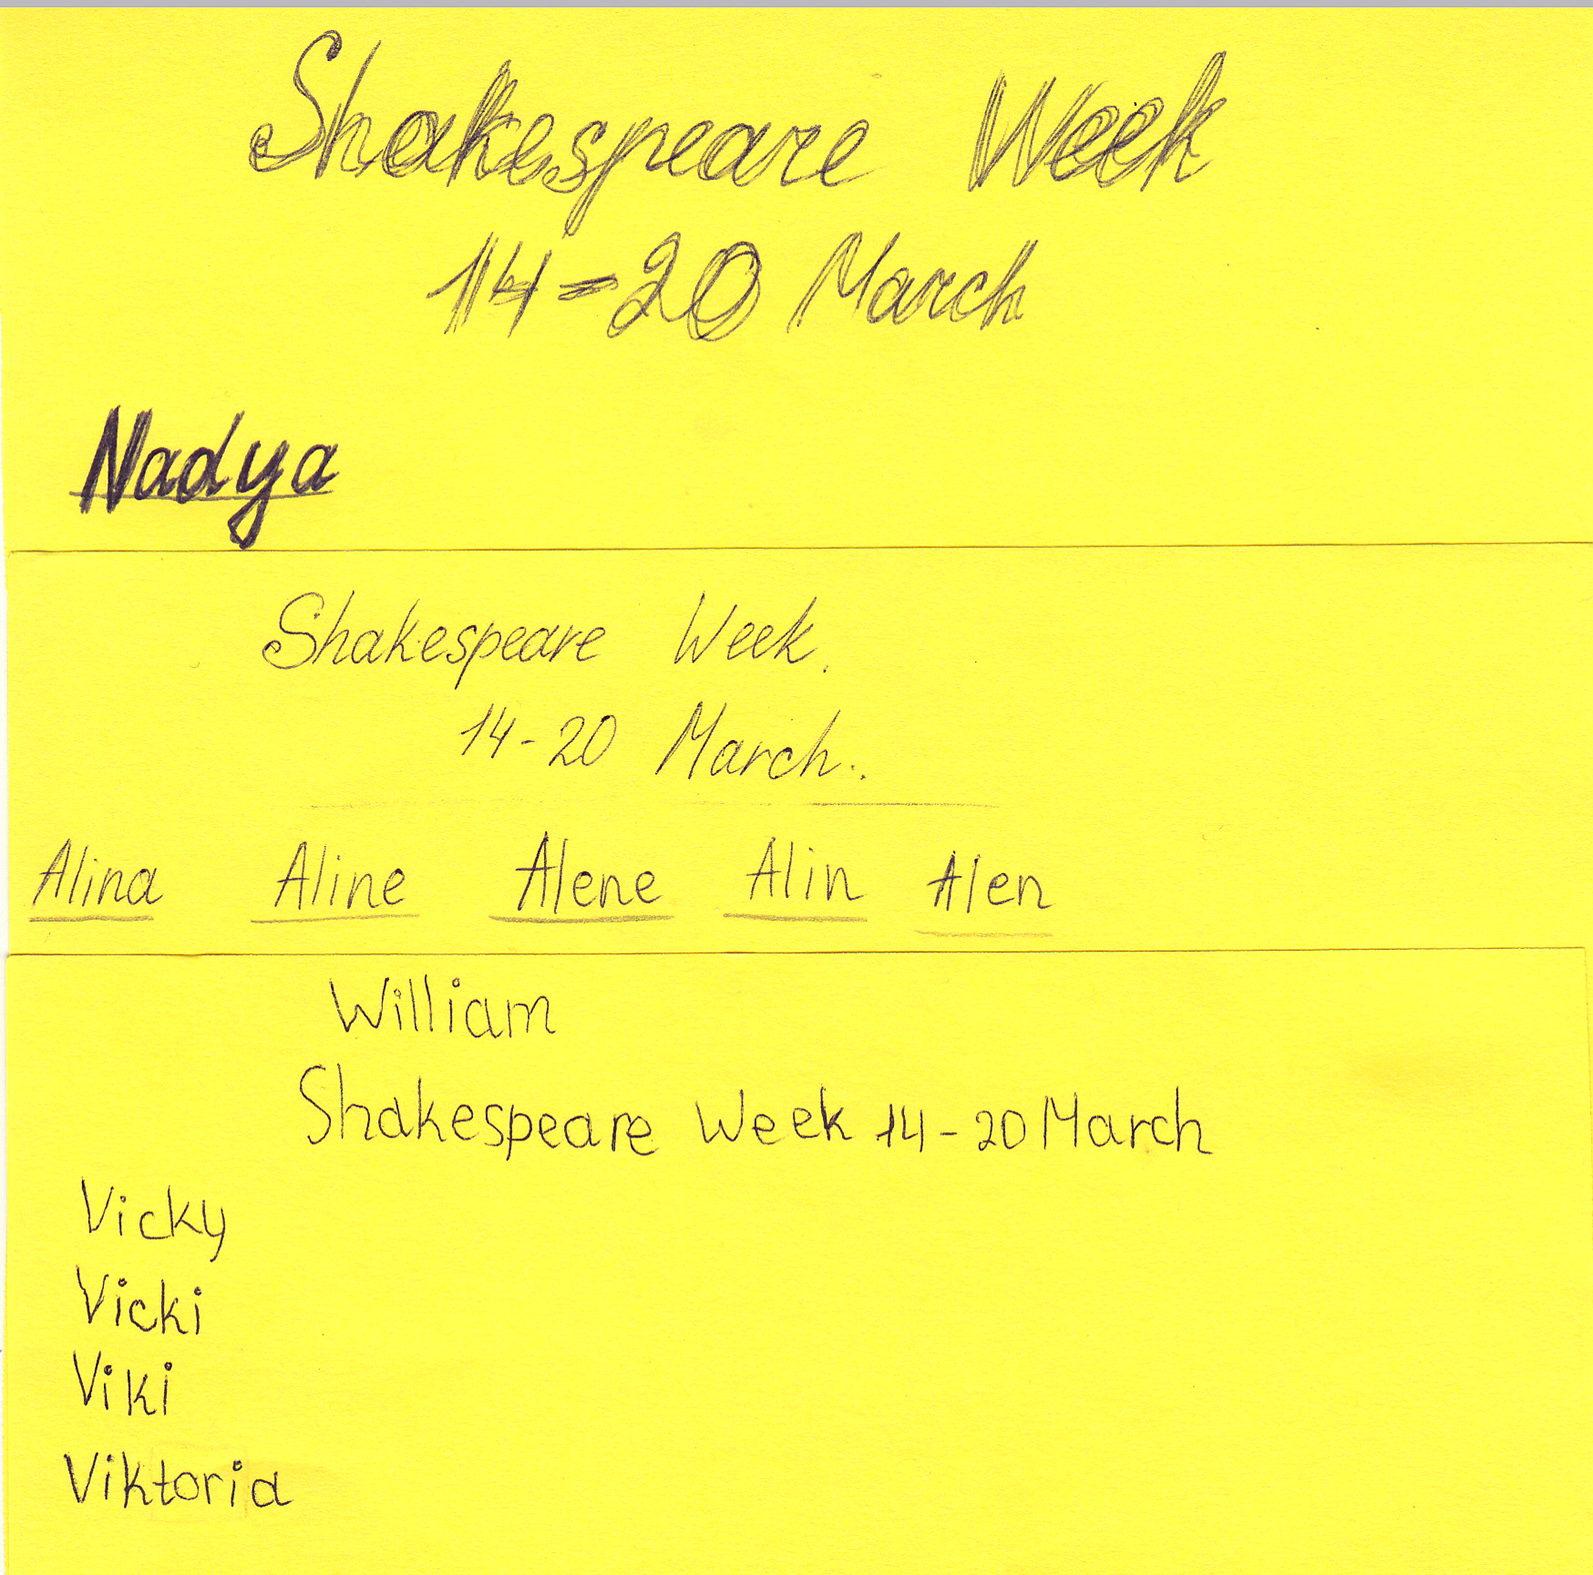 Shakespeare Week
14-20 March
Nadya
Shakespeare Week.
14-20 March..
Alina Aline Alene Alin Alen
William
Shakespeare Week 14-20 March
Vicky
Vicki
Viki
Viktoria